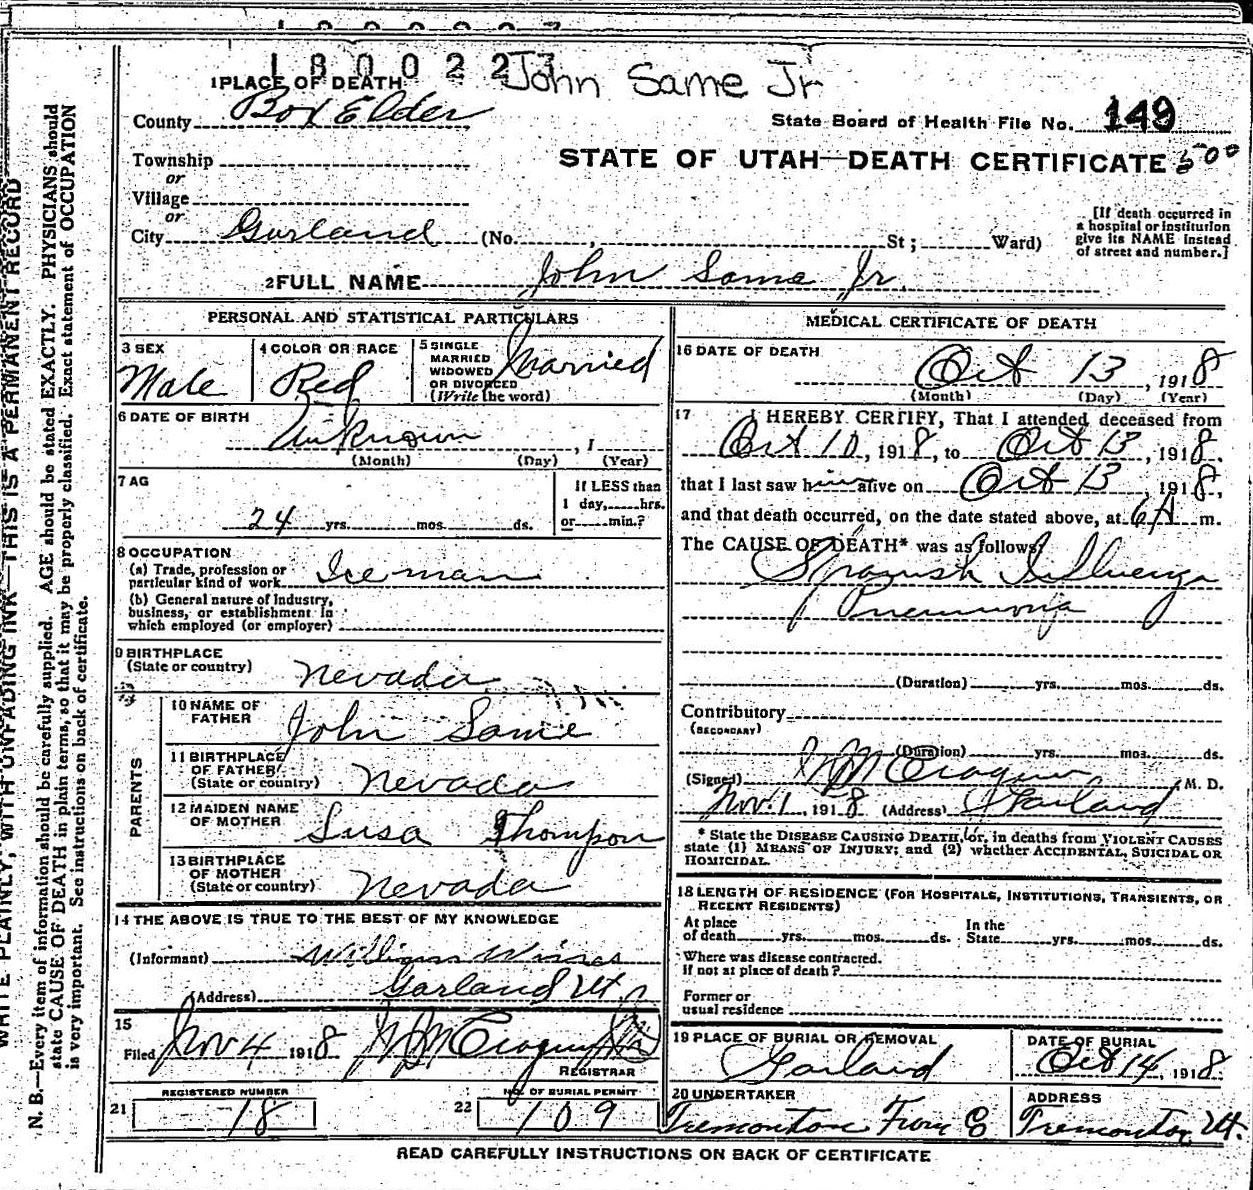 1800227
John Same Jr
1 PLACE OF DEATH
County Box Elder
State Board of Health File No. 149
Township
STATE OF UTAH—DEATH CERTIFICATE 500
or
Village
or
City Garland (No. , St; Ward)
[If death occurred in
a hospital or institution
give its NAME instead
of street and number.]
2 FULL NAME John Same Jr.
PERSONAL AND STATISTICAL PARTICULARS
3 SEX
Male
4 COLOR OR RACE
Red
5 SINGLE
MARRIED
WIDOWED
OR DIVORCED
(Write the word)
Married
6 DATE OF BIRTH
Unknown , 1
(Month) (Day) (Year)
7 AG
24 yrs. mos. ds.
If LESS than
1 day, hrs.
or min.?
8 OCCUPATION
(a) Trade, profession or
particular kind of work Ice man
(b) General nature of industry,
business, or establishment in
which employed (or employer)
9 BIRTHPLACE
(State or country) Nevada
PARENTS
10 NAME OF
FATHER John Same
11 BIRTHPLACE
OF FATHER
(State or country) Nevada
12 MAIDEN NAME
OF MOTHER Susa Thompson
13 BIRTHPLACE
OF MOTHER
(State or country) Nevada
14 THE ABOVE IS TRUE TO THE BEST OF MY KNOWLEDGE
(Informant) William
(Address) Garland Ut
15
Filed Nov 4 1918
REGISTRAR
REGISTERED NUMBER
21 18
NO. OF BURIAL PERMIT
22 109
MEDICAL CERTIFICATE OF DEATH
16 DATE OF DEATH
Oct 13, 1918
(Month) (Day) (Year)
17 I HEREBY CERTIFY, That I attended deceased from
Oct 10, 1918, to Oct 13, 1918.
that I last saw him alive on Oct 13, 1918,
and that death occurred, on the date stated above, at 6A m.
The CAUSE OF DEATH* was as follows:
Spanish Influenza
Pneumonia
(Duration) yrs. mos. ds.
Contributory
(SECONDARY)
(Duration) yrs. mos. ds.
(Signed) M. D.
Nov. 1, 1918 (Address) Garland
* State the DISEASE CAUSING DEATH, or, in deaths from VIOLENT CAUSES
state (1) MEANS OF INJURY; and (2) whether ACCIDENTAL, SUICIDAL OR
HOMICIDAL.
18 LENGTH OF RESIDENCE (FOR HOSPITALS, INSTITUTIONS, TRANSIENTS, OR
RECENT RESIDENTS)
At place
of death yrs. mos. ds.
In the
State yrs. mos. ds.
Where was disease contracted.
if not at place of death?
Former or
usual residence
19 PLACE OF BURIAL OR REMOVAL
Garland
DATE OF BURIAL
Oct 14, 1918
20 UNDERTAKER
Tremonton Furn Co
ADDRESS
Tremonton Ut.
READ CAREFULLY INSTRUCTIONS ON BACK OF CERTIFICATE
WRITE PLAINLY, WITH UNFADING INK—THIS IS A PERMANENT RECORD
N. B.—Every item of information should be carefully supplied. AGE should be stated EXACTLY. PHYSICIANS should
state CAUSE OF DEATH in plain terms, so that it may be properly classified. Exact statement of OCCUPATION
is very important. See instructions on back of certificate.